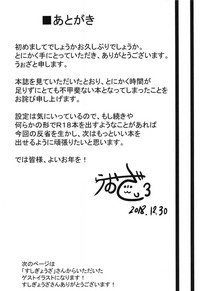 ■あとがき
初めましてでしょうかお久しぶりでしょうか。
とにかく手にとっていただき、ありがとうございます。
うぉざと申します。
本誌を見ていただいたとおり、とにかく時間が
足りずにとても不甲斐ない本となってしまったことを
お詫び申し上げます。
設定は気にいっているので、もし続きや
何らかの形でR18本を出すようなことがあれば
今回の反省を生かし、次はもっといい本を
出せるように頑張りたいと思います。
では皆様、よいお年を！
2018.12.30
次のページは
「すしぎょうざ」さんからいただいた
ゲストイラストになります！
すしぎょうざさんありがとうございます！